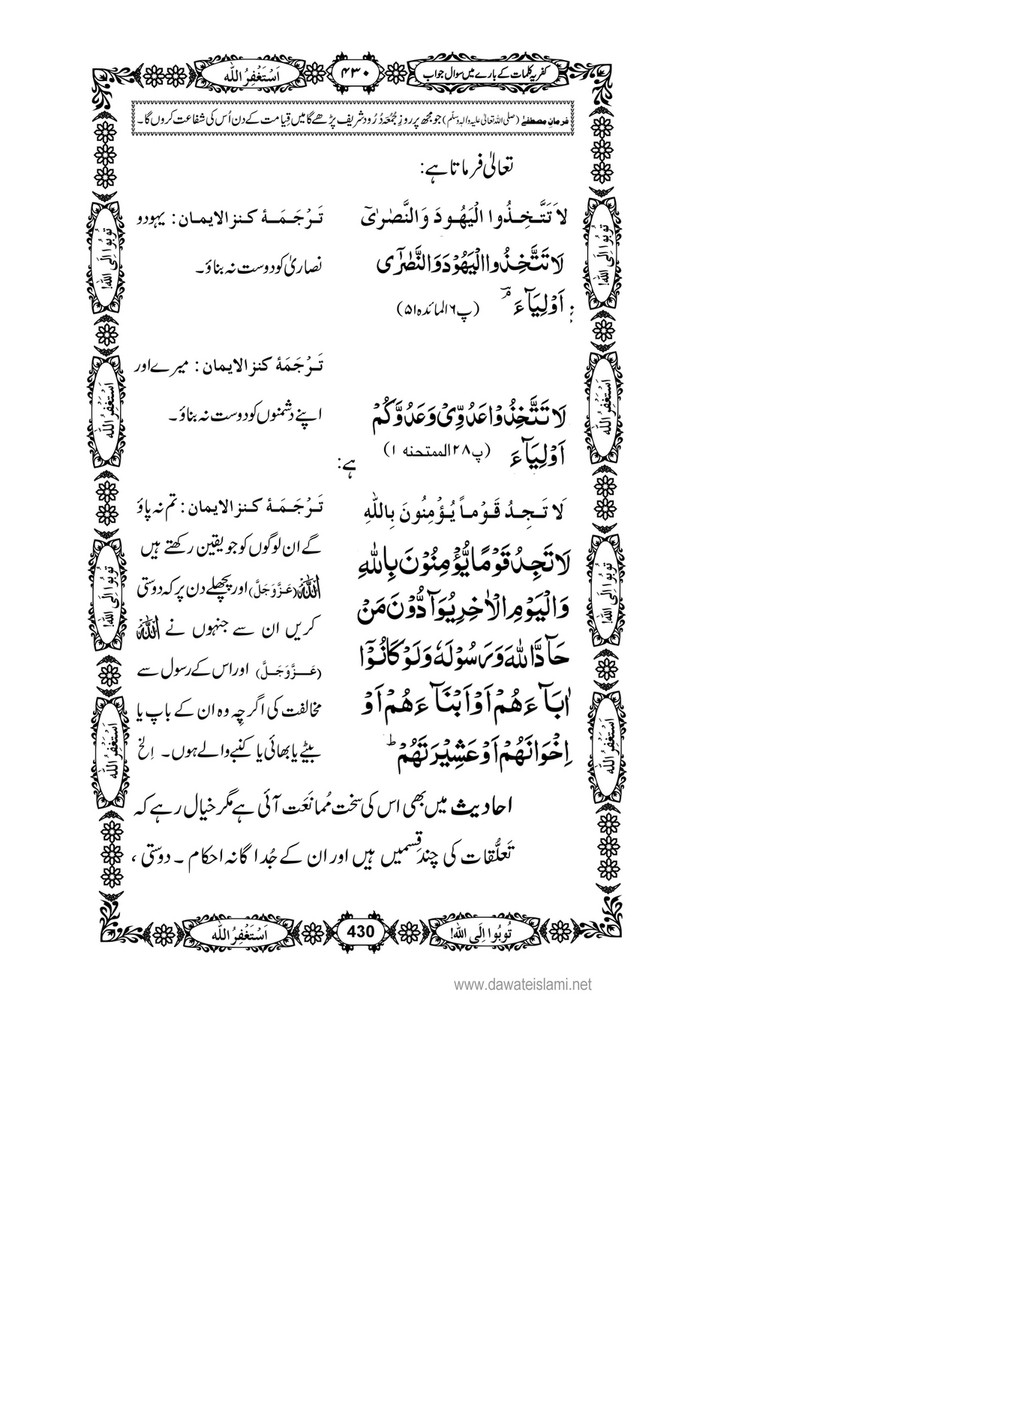 کفریہ کلمات کے بارے میں سوال جواب ۴۳۰ اَسْتَغْفِرُ اللہ
فرمانِ مصطفےٰ (صلی اللہ تعالیٰ علیہ والہٖ وسلّم) جو مجھ پر روزِ جُمُعَہ دُرُود شریف پڑھے گا میں قِیامت کے دن اُس کی شفاعت کروں گا۔
تعالیٰ فرماتا ہے:
لَا تَتَّخِذُوا الْیَہُودَ وَالنَّصٰرٰیٓ
لَا تَتَّخِذُوا الْیَہُوْدَ وَالنَّصٰرٰۤی
اَوْلِیَآءَ ۘ (پ۶ المائدہ ۵۱)
تَرْجَمَۂ کنز الایمان: یہود و
نصاریٰ کو دوست نہ بناؤ۔
لَا تَتَّخِذُوْا عَدُوِّیْ وَعَدُوَّکُمْ
اَوْلِیَآءَ (پ۲۸ الممتحنہ ۱)
تَرْجَمَۂ کنز الایمان: میرے اور
اپنے دشمنوں کو دوست نہ بناؤ۔
ہے:
لَا تَجِدُ قَوْماً یُؤْمِنُونَ بِاللہِ
لَا تَجِدُ قَوْمًا یُّؤْمِنُوْنَ بِاللہِ
وَالْیَوْمِ الْاٰخِرِ یُوَآدُّوْنَ مَنْ
حَآدَّ اللہَ وَرَسُوْلَہٗ وَلَوْ کَانُوْۤا
اٰبَآءَہُمْ اَوْ اَبْنَآءَہُمْ اَوْ
اِخْوَانَہُمْ اَوْ عَشِیْرَتَہُمْ ؕ
تَرْجَمَۂ کنز الایمان: تم نہ پاؤ
گے ان لوگوں کو جو یقین رکھتے ہیں
اللہ (عَزَّوَجَلَّ) اور پچھلے دن پر کہ دوستی
کریں ان سے جنہوں نے اللہ
(عَزَّوَجَلَّ) اور اس کے رسول سے
مخالفت کی اگرچہ وہ ان کے باپ یا
بیٹے یا بھائی یا کنبے والے ہوں۔ الخ
احادیث میں بھی اس کی سخت مُمانَعَت آئی ہے مگر خیال رہے کہ
تَعَلُّقات کی چند قِسمیں ہیں اور ان کے جُدا گانہ احکام ۔ دوستی ،
تُوبُوا اِلَی اللہ!
اَسْتَغْفِرُ اللہ
تُوبُوا اِلَی اللہ!
اَسْتَغْفِرُ اللہ
تُوبُوا اِلَی اللہ!
اَسْتَغْفِرُ اللہ
تُوبُوا اِلَی اللہ!
اَسْتَغْفِرُ اللہ
تُوبُوا اِلَی اللہ! 430 اَسْتَغْفِرُ اللہ
www.dawateislami.net